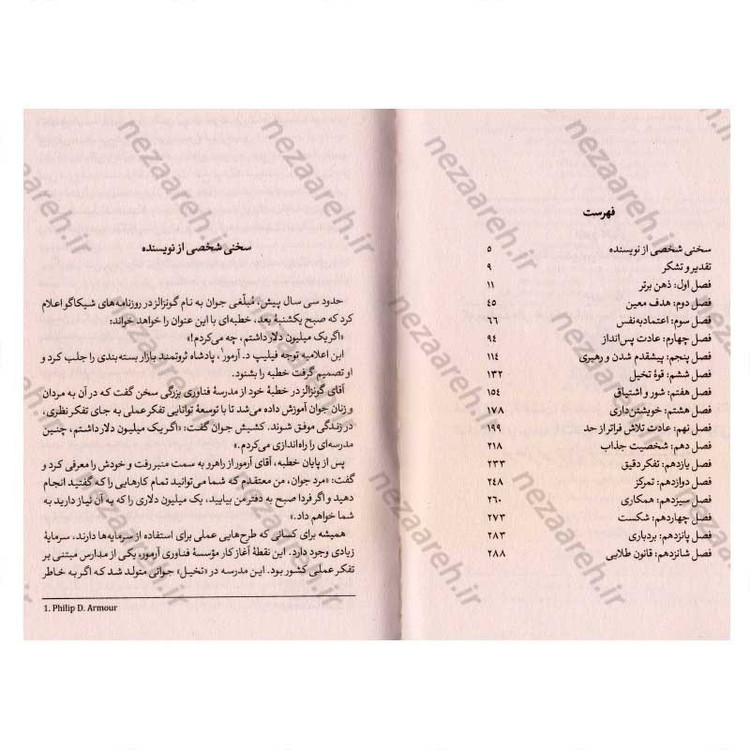 فهرست
سخنی شخصی از نویسنده ۵
تقدیر و تشکر ۹
فصل اول: ذهن برتر ۱۱
فصل دوم: هدف معین ۴۵
فصل سوم: اعتمادبه‌نفس ۶۶
فصل چهارم: عادت پس‌انداز ۹۴
فصل پنجم: پیشقدم شدن و رهبری ۱۱۴
فصل ششم: قوهٔ تخیل ۱۳۲
فصل هفتم: شور و اشتیاق ۱۵۴
فصل هشتم: خویشتن‌داری ۱۷۸
فصل نهم: عادت تلاش فراتر از حد ۱۹۹
فصل دهم: شخصیت جذاب ۲۱۸
فصل یازدهم: تفکر دقیق ۲۳۳
فصل دوازدهم: تمرکز ۲۴۸
فصل سیزدهم: همکاری ۲۶۰
فصل چهاردهم: شکست ۲۷۳
فصل پانزدهم: بردباری ۲۸۳
فصل شانزدهم: قانون طلایی ۲۸۸
سخنی شخصی از نویسنده
حدود سی سال پیش، مُبلّغی جوان به نام گونزالز در روزنامه‌های شیکاگو اعلام
کرد که صبح یکشنبهٔ بعد، خطبه‌ای با این عنوان را خواهد خواند:
«اگر یک میلیون دلار داشتم، چه می‌کردم!»
این اعلامیه توجه فیلیپ د. آرمور۱، پادشاه ثروتمند بازار بسته‌بندی را جلب کرد و
او تصمیم گرفت خطبه را بشنود.
آقای گونزالز در خطبهٔ خود از مدرسهٔ فناوری بزرگی سخن گفت که در آن به مردان
و زنان جوان آموزش داده می‌شد تا با توسعهٔ توانایی تفکر عملی به جای تفکر نظری،
در زندگی موفق شوند. کشیش جوان گفت: «اگر یک میلیون دلار داشتم، چنین
مدرسه‌ای را راه‌اندازی می‌کردم.»
پس از پایان خطبه، آقای آرمور از راهرو به سمت منبر رفت و خودش را معرفی کرد و
گفت: «مرد جوان، من معتقدم که شما می‌توانید تمام کارهایی را که گفتید انجام
دهید و اگر فردا صبح به دفتر من بیایید، یک میلیون دلاری را که به آن نیاز دارید به
شما خواهم داد.»
همیشه برای کسانی که طرح‌هایی عملی برای استفاده از سرمایه‌ها دارند، سرمایهٔ
زیادی وجود دارد. این نقطهٔ آغاز کار مؤسسهٔ فناوری آرمور، یکی از مدارس مبتنی بر
تفکر عملی کشور بود. این مدرسه در «تخیل» جوانی متولد شد که اگر به خاطر
1. Philip D. Armour
nezaareh.ir
nezaareh.ir
nezaareh.ir
nezaareh.ir
nezaareh.ir
nezaareh.ir
nezaareh.ir
nezaareh.ir